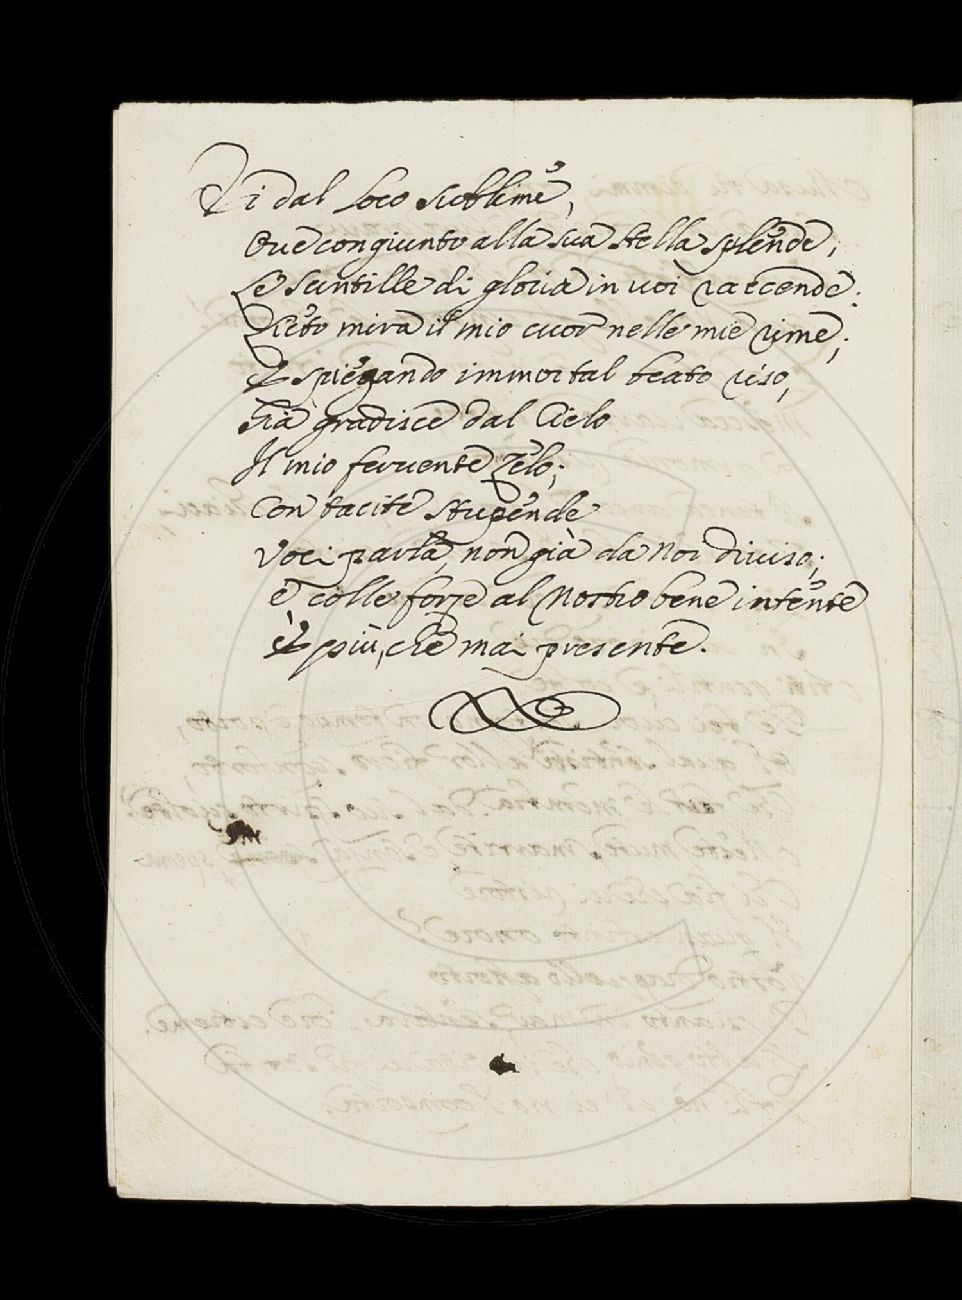 Ei dal loco sublime,
Ove congiunto alla sua stella splende,
Le scintille di gloria in voi raccende.
Lieto mira il mio cuor nelle mie rime;
E spiegando immortal beato viso,
Già gradisce dal Cielo
Il mio fervente zelo;
Con tacite stupende
Voci parla, non già da noi diviso;
e colle forze al nostro bene intente
È più, che mai presente.